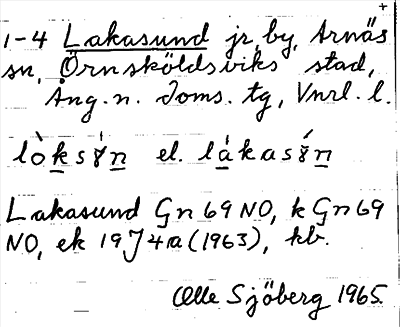 1-4 Lakasund jr, by, Arnäs
sn, Örnsköldsviks stad,
Ång. n. doms. tg, Vnrl. l.
el.
Lakasund Gn 69 NO, k Gn 69
NO, ek 19J4a (1963), hb.
Olle Sjöberg 1965.